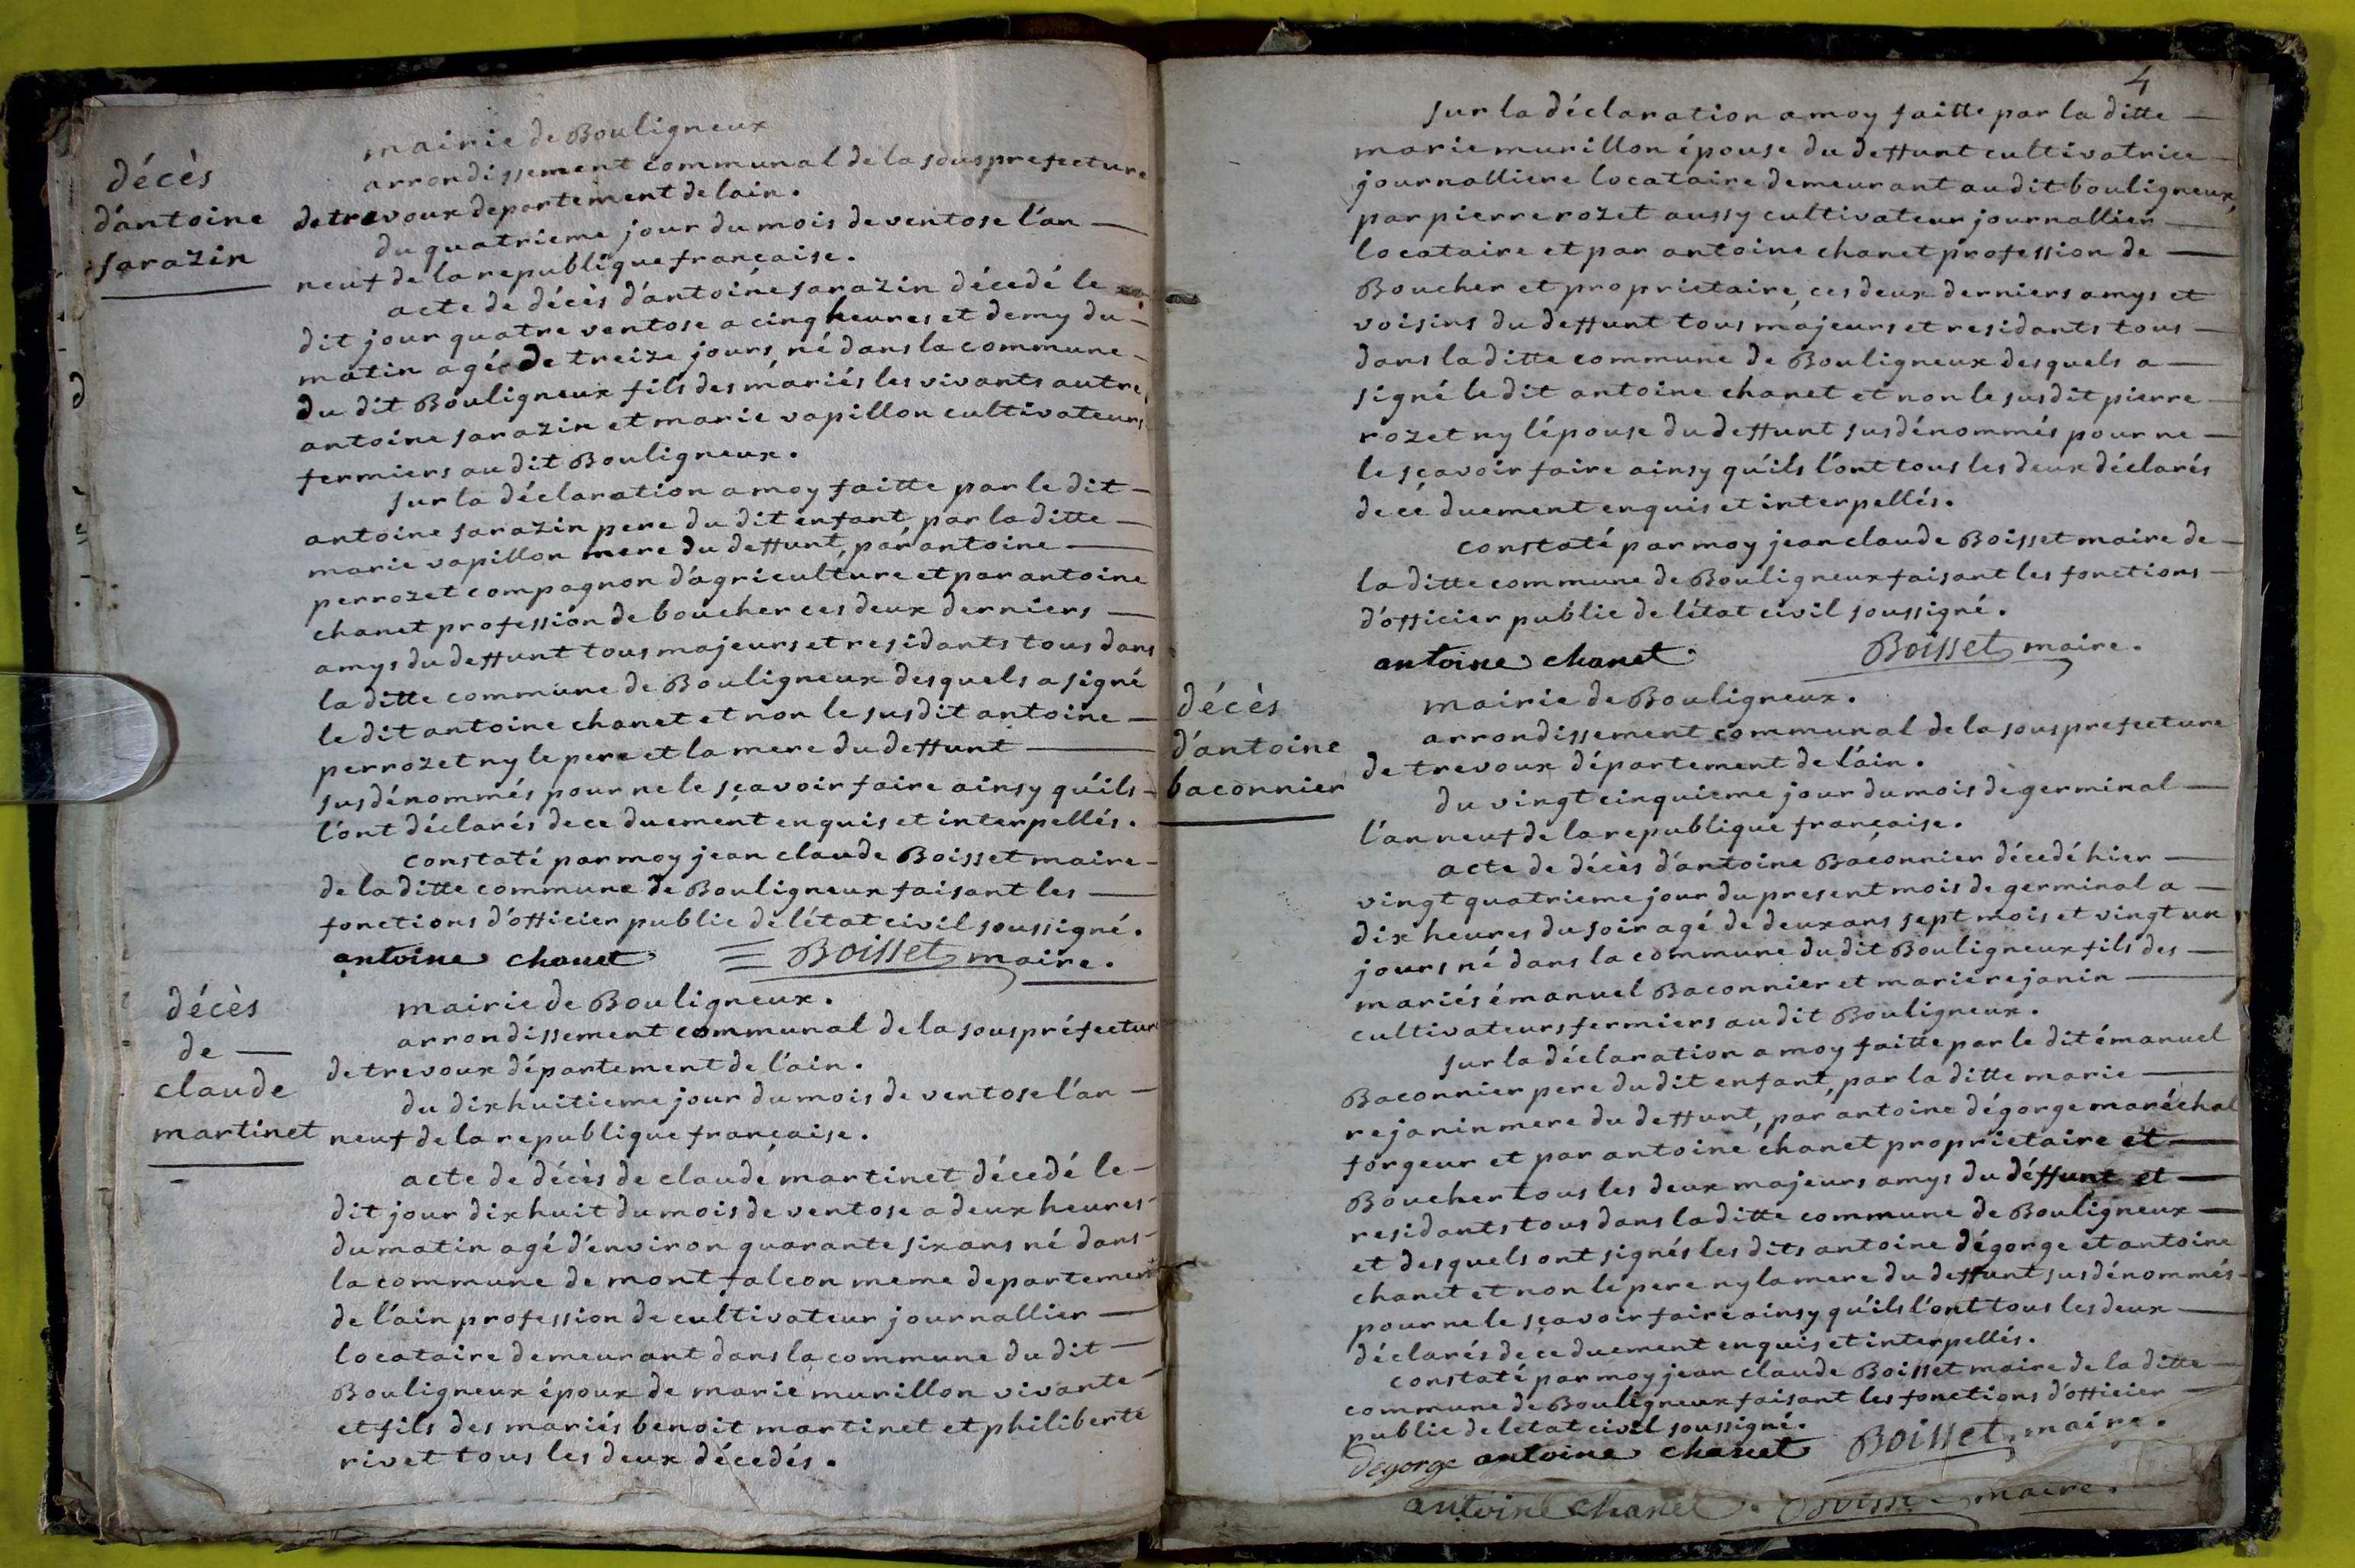 décès
d'antoine
sarazin
mairie de Bouligneux
arrondissement communal de la sousprefecture
de trevoux departement de lain.
du quatrieme jour du mois de ventose l'an
neuf de la republique française.
acte de décès d'antoine sarazin décedé le
dit jour quatre ventose a cinq heures et demy du
matin agé de treize jours, né dans la commune
du dit Bouligneux fils des mariés les vivants autre,
antoine sarazin et marie vapillon cultivateurs
fermiers au dit Bouligneux.
sur la déclaration a moy faitte par le dit
antoine sarazin pere du dit enfant, par la ditte
marie vapillon mere du deffunt, par antoine
perrozet compagnon d'agriculture et par antoine
chanet profession de boucher ces deux derniers
amys du deffunt tous majeurs et residants tous dans
la ditte commune de Bouligneux desquels a signé
le dit antoine chanet et non le susdit antoine
perrozet ny le pere et la mere du deffunt
susdénommés pour ne le sçavoir faire ainsy qu'ils
l'ont déclarés de ce duement enquis et interpellés.
constaté par moy jean claude Boisset maire
de la ditte commune de Bouligneux faisant les
fonctions d'officier public de l'état civil soussigné.
antoine chanet Boisset maire.
décès
de
claude
martinet
mairie de Bouligneux.
arrondissement communal de la souspréfectur
de trevoux département de l'ain.
du dixhuitieme jour du mois de ventose l'an
neuf de la republique française.
acte de décès de claude martinet décedé le
dit jour dixhuit du mois de ventose a deux heures
du matin agé d'environ quarante six ans né dans
la commune de montfalcon meme departement
de l'ain profession de cultivateur journallier
locataire demeurant dans la commune du dit
Bouligneux époux de marie murillon vivante
et fils des mariés benoit martinet et philiberte
rivet tous les deux décedés.
4
sur la déclaration a moy faitte par la ditte
marie murillon épouse du deffunt cultivatrice
journalliere locataire demeurant au dit bouligneux,
par pierre rozet aussy cultivateur journallier
locataire et par antoine chanet profession de
Boucher et proprietaire, ces deux derniers amys et
voisins du deffunt tous majeurs et residants tous
dans la ditte commune de Bouligneux desquels a
signé le dit antoine chanet et non le susdit pierre
rozet ny l'épouse du deffunt susdénommés pour ne
le sçavoir faire ainsy qu'ils l'ont tous les deux déclarés
de cé duement enquis et interpellés.
constaté par moy jean claude Boisset maire de
la ditte commune de Bouligneux faisant les fonctions
d'officier public de l'état civil soussigné.
antoine chanet Boisset maire.
décès
d'antoine
baconnier
mairie de Bouligneux.
arrondissement communal de la sousprefecture
de trevoux département de l'ain.
du vingt cinquieme jour du mois de germinal
l'an neuf de la republique française.
acte de décès d'antoine Baconnier décedé hier
vingt quatrieme jour du present mois de germinal a
dix heures du soir agé de deux ans sept mois et vingt un
jours né dans la commune du dit Bouligneux fils des
mariés émanuel Baconnier et marie rejanin
cultivateurs fermiers au dit Bouligneux.
sur la déclaration a moy faitte par le dit émanuel
Baconnier pere du dit enfant, par la ditte marie
rejanin mere du deffunt, par antoine dégorge maréchal
forgeur et par antoine chanet proprietaire et
Boucher tous les deux majeurs amys du déffunt et
residants tous dans la ditte commune de Bouligneux
et desquels ont signés les dits antoine dégorge et antoine
chanet et non le pere ny la mere du deffunt susdénommés
pour ne le sçavoir faire ainsy qu'ils l'ont tous les deux
déclarés de ce duement enquis et interpellés.
constaté par moy jean claude Boisset maire de la ditte
commune de Bouligneux faisant les fonctions d'officier
public de letat civil soussigné.
Dégorge antoine chanet Boisset maire.
antoine chanet Boisset maire.